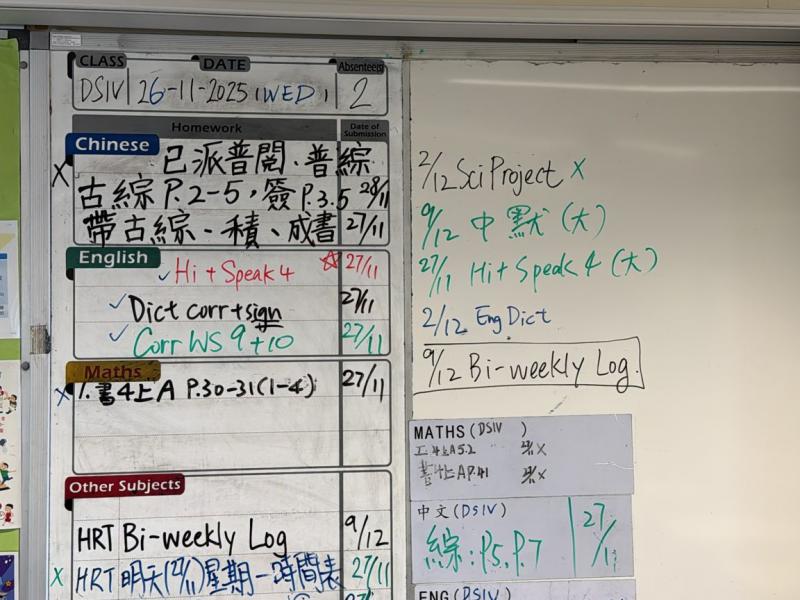 CLASS DATE Absentee(s)
DSIV 26-11-2025 (WED) 2
Homework Date of Submission
Chinese
已派普閱、普綜
古綜 P.2-5, 簽 P.3.5 28/11
帶古綜、積、成書 27/11
English
Hi + Speak 4 27/11
Dict corr + sign 27/11
Corr WS 9+10 27/11
Maths
1. 書4上A P.30-31(1-4) 27/11
Other Subjects
HRT Bi-weekly Log 9/12
HRT 明天(27/11)星期一時間表 27/11
2/12 Sci Project X
9/12 中默 (大)
27/11 Hi + Speak 4 (大)
2/12 Eng Dict
9/12 Bi-weekly Log.
MATHS (DSIV)
工4上A5.2
書4上A P.41
中文 (DSIV)
綜: P.5, P.7 27/11
ENG (DSIV)